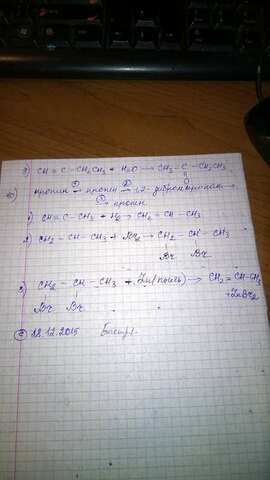 3) CH ≡ C – CH2CH3 + H2O ⟶ CH3 – C – CH2CH3
O
пропин ① → пропен ② → 1,2-дибромпропан →
③ → пропен
1) CH ≡ C – CH3 + H2 → CH2 = CH – CH3
2) CH2 = CH – CH3 + Br2 → CH2 – CH – CH3
Br Br
3) CH2 – CH – CH3 + Zn(пыль) → CH2 = CH – CH3
Br Br + ZnBr2
18.12.2015